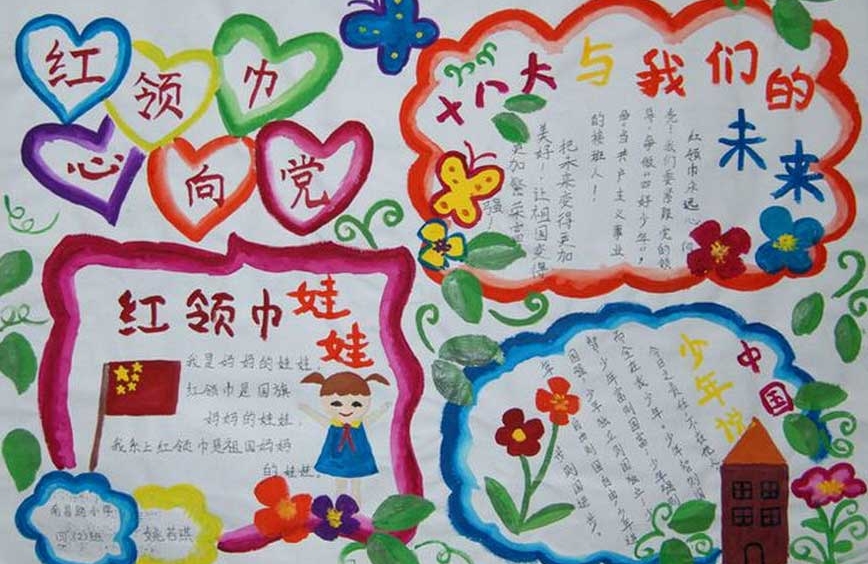 红领巾
心向党
十八大与我们的未来
红领巾永远心向
党！我们要紧跟党的领
导，每做“四好少年”，
当共产主义事业
的接班人！
把未来变得更加
美好！让祖国变得
更加繁荣富强
红领巾娃娃
我是妈妈的娃娃，
红领巾是国旗
妈妈的娃娃，
我系上红领巾是祖国妈妈
的娃娃。
中国
少年说
今日之责任，不在他人
而全在我少年。少年智则国
智，少年富则国富；少年强则
国强，少年独立则国独立；少
年自由则国自由；少年进
步则国进步。
姚若琪